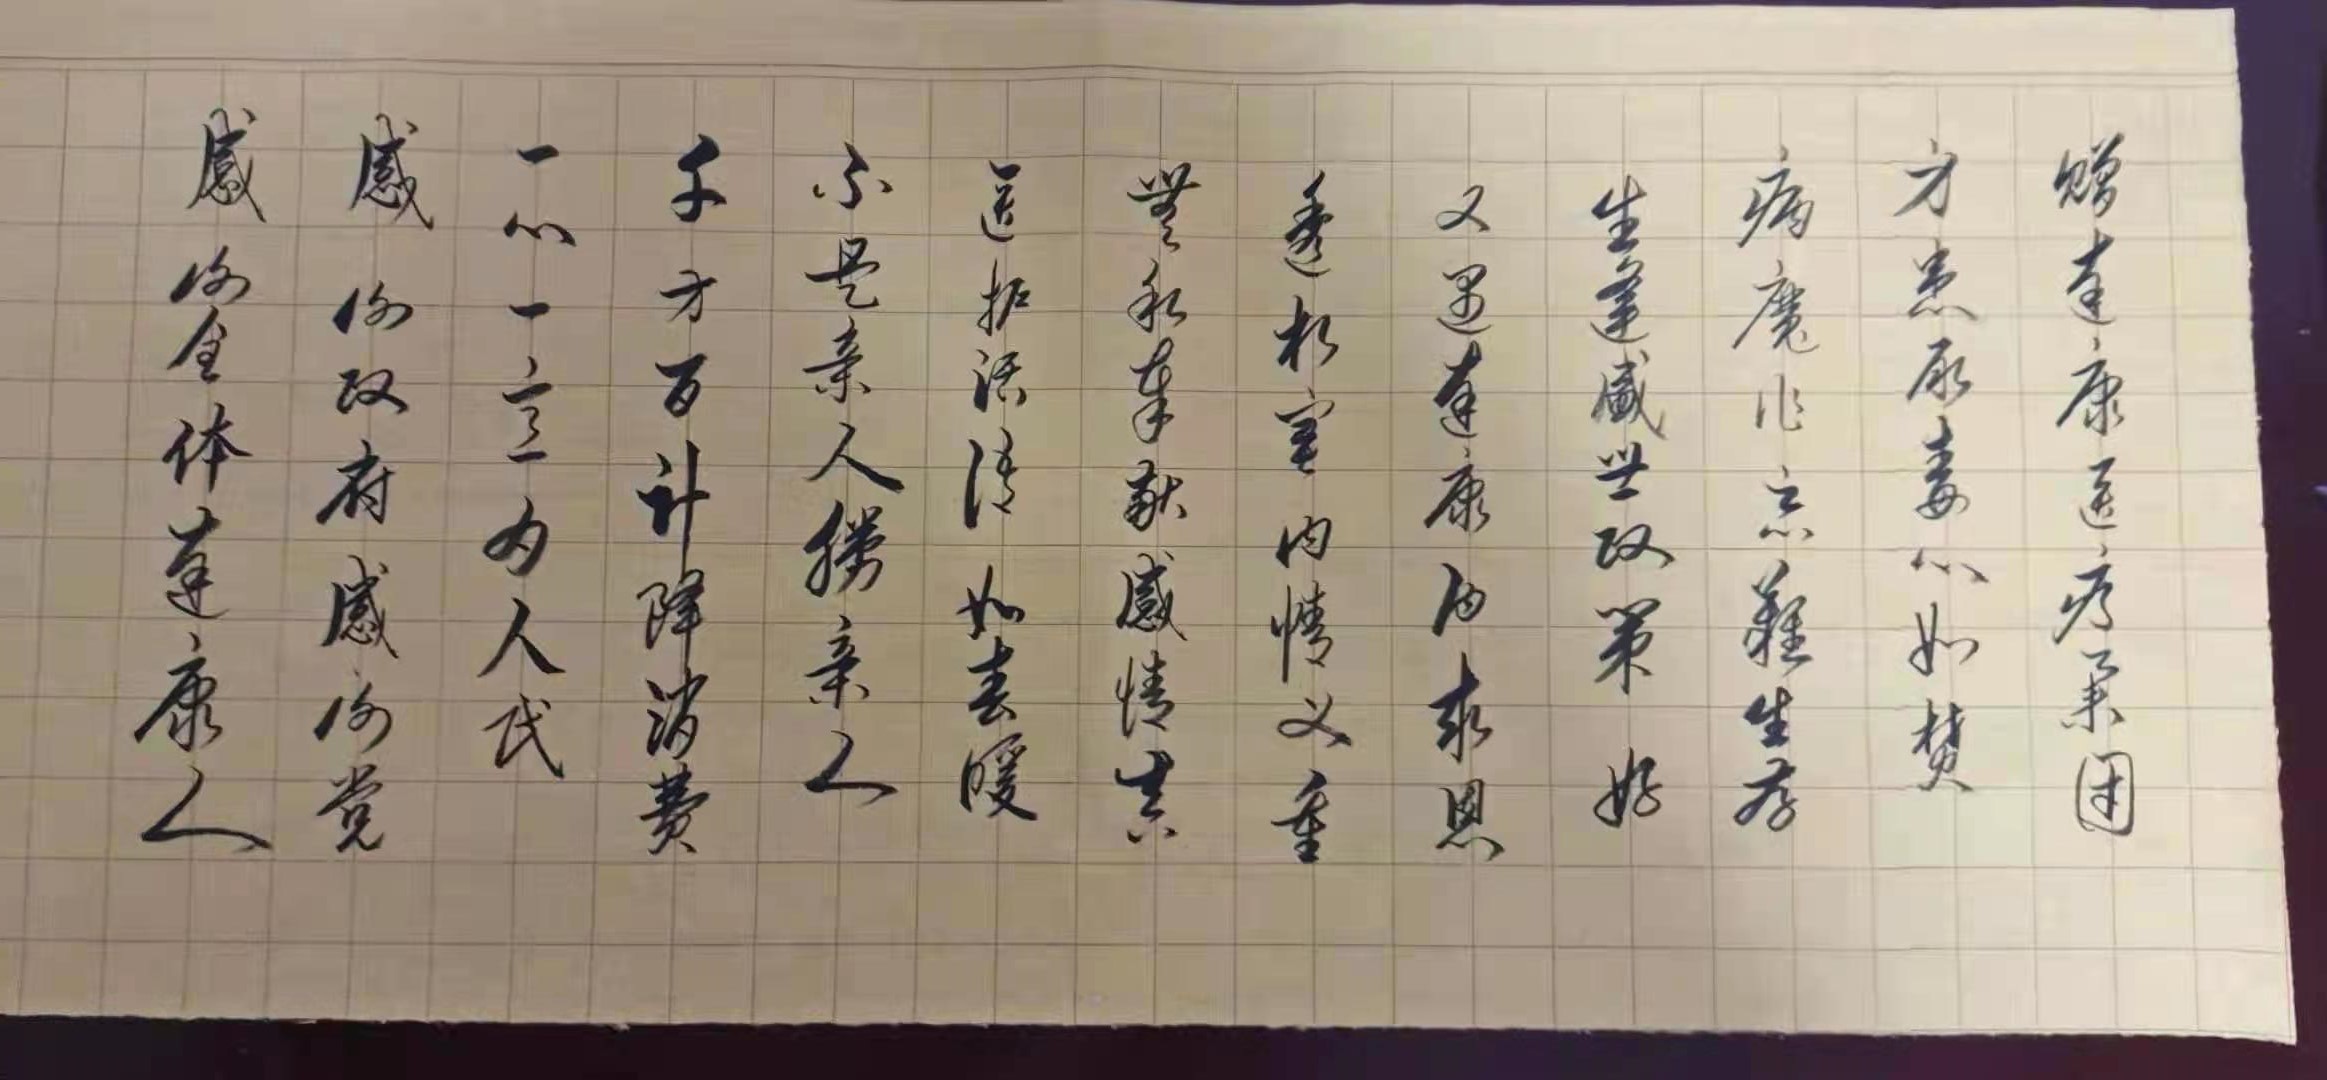 赠達康医疗集团
身患尿毒心如焚
病魔作恶難生存
生逢盛世政策好
又遇達康白求恩
透析室内情义重
無私奉献感情真
医护话语如春暖
不是亲人勝亲人
千方百计降消费
一心一意为人民
感谢政府感谢党
感谢全体達康人